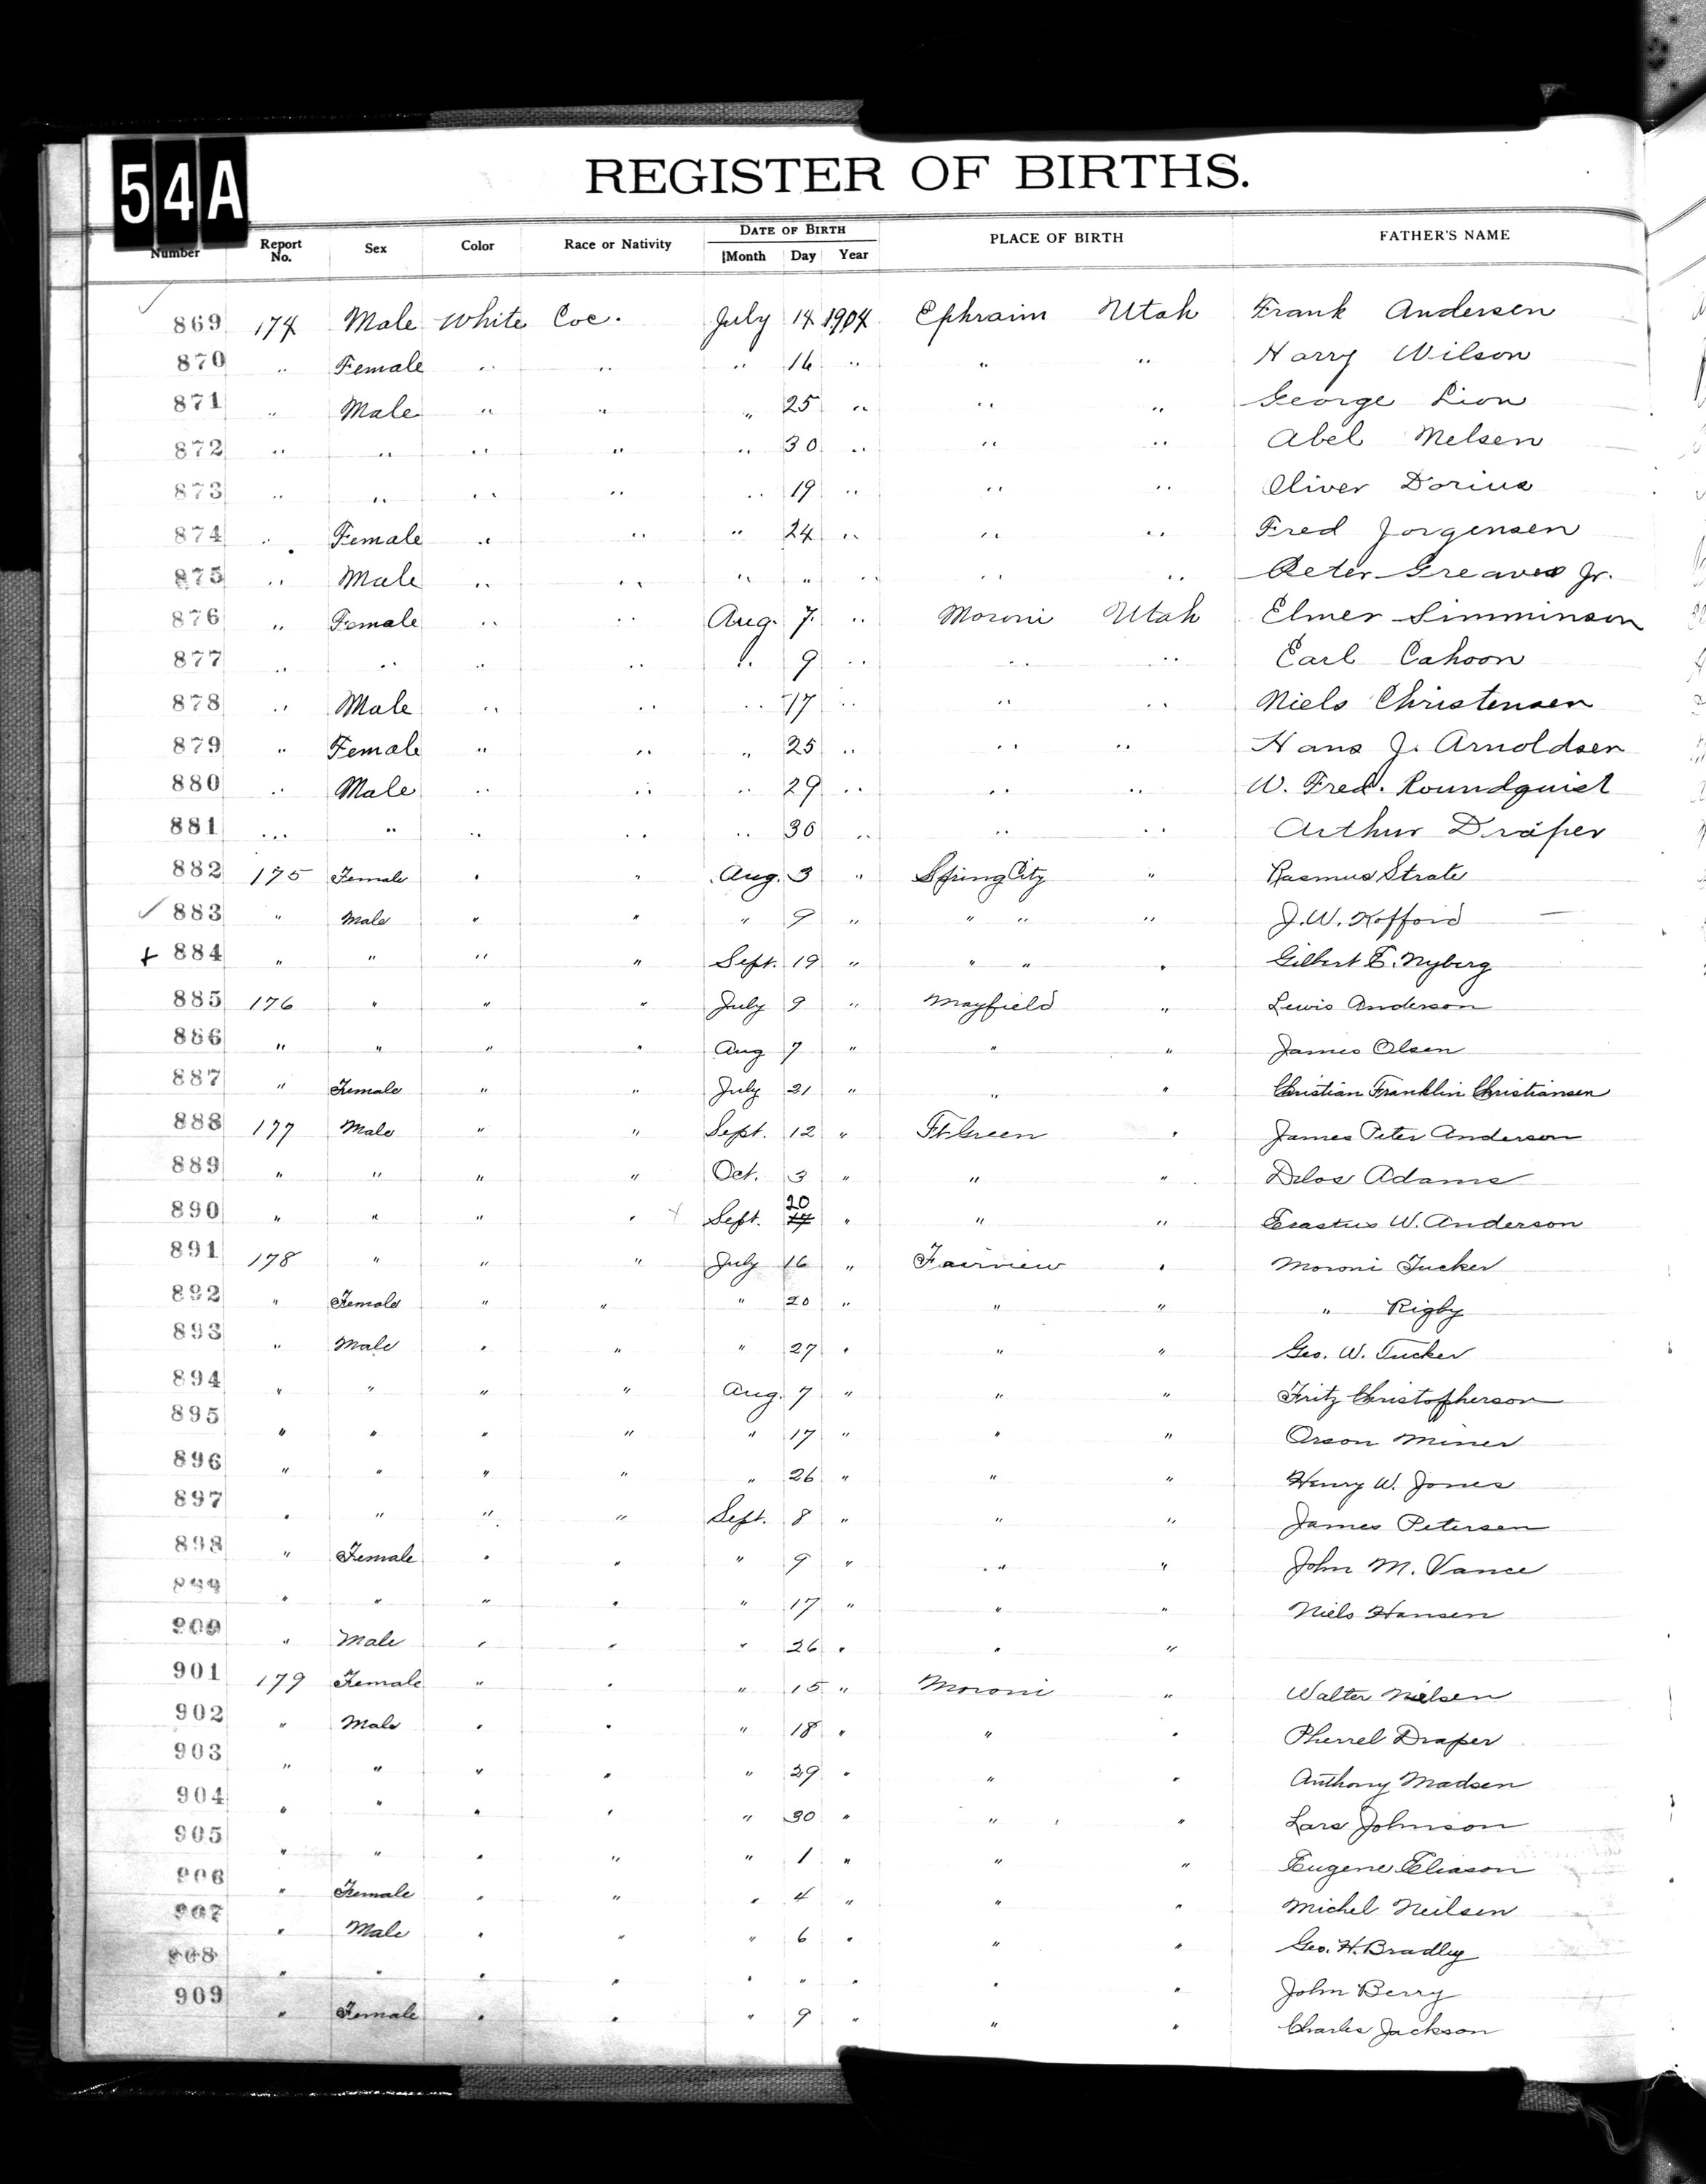 54A
REGISTER OF BIRTHS.
Number Report No. Sex Color Race or Nativity DATE OF BIRTH Month Day Year PLACE OF BIRTH FATHER'S NAME
869 174 Male White Coc. July 14 1904 Ephraim Utah Frank Andersen
870 " Female " " " 16 " " " Harry Wilson
871 " Male " " " 25 " " " George Lion
872 " " " " " 30 " " " Abel Nelsen
873 " " " " " 19 " " " Oliver Dorius
874 " Female " " " 24 " " " Fred Jorgensen
875 " Male " " " " " " " Peter Greaves Jr.
876 " Female " " Aug. 7 " Moroni Utah Elmer Simminson
877 " " " " " 9 " " " Earl Cahoon
878 " Male " " " 17 " " " Niels Christensen
879 " Female " " " 25 " " " Hans J. Arnoldsen
880 " Male " " " 29 " " " W. Fred. Roundquist
881 " " " " " 30 " " " Arthur Draper
882 175 Female " " Aug. 3 " Spring City " Rasmus Strate
883 " Male " " " 9 " " " " J.W. Kofford
884 " " " " Sept. 19 " " " " Gilbert E. Nyberg
885 176 " " " July 9 " Mayfield " Lewis Anderson
886 " " " " Aug 7 " " " James Olsen
887 " Female " " July 21 " " " Christian Franklin Christiansen
888 177 Male " " Sept. 12 " Ft. Green " James Peter Anderson
889 " " " " Oct. 3 " " " Delos Adams
890 " " " " Sept. 20 " " " Erastus W. Anderson
891 178 " " " July 16 " Fairview " Moroni Tucker
892 " Female " " " 20 " " " " Rigby
893 " Male " " " 27 " " " Geo. W. Tucker
894 " " " " Aug. 7 " " " Fritz Christopherson
895 " " " " " 17 " " " Orson Miner
896 " " " " " 26 " " " Henry W. Jones
897 " " " " Sept. 8 " " " James Petersen
898 " Female " " " 9 " " " John M. Vance
899 " " " " " 17 " " " Niels Hansen
900 " Male " " " 26 " " "
901 179 Female " " " 15 " Moroni " Walter Nielsen
902 " Male " " " 18 " " " Pherrel Draper
903 " " " " " 29 " " " Anthony Madsen
904 " " " " " 30 " " " Lars Johnson
905 " " " " " 1 " " " Eugene Eliason
906 " Female " " " 4 " " " Michel Neilsen
907 " Male " " " 6 " " " Geo. H. Bradley
908 " " " " " " " " " John Berry
909 " Female " " " 9 " " " Charles Jackson